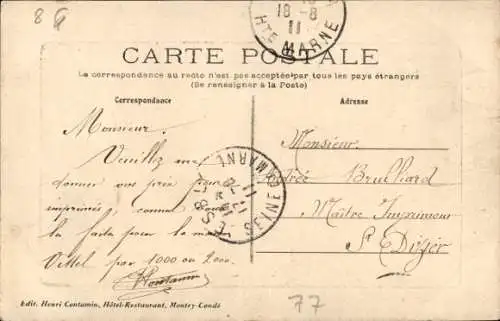 86
18-8
11
HTE MARNE
CARTE POSTALE
La correspondance au recto n'est pas acceptée par tous les pays étrangers
(Se renseigner à la Poste)
Correspondance
Adresse
Monsieur.
Veuillez me
donner vos prix pour
imprimés, comme
la faite pour la
Vittel par 1000 ou 2000.
Contamin
Monsieur
André Brulliard
Maître Imprimeur
St Dizier
SEINE & MARNE
Edit. Henri Contamin, Hôtel-Restaurant, Montry-Condé
77